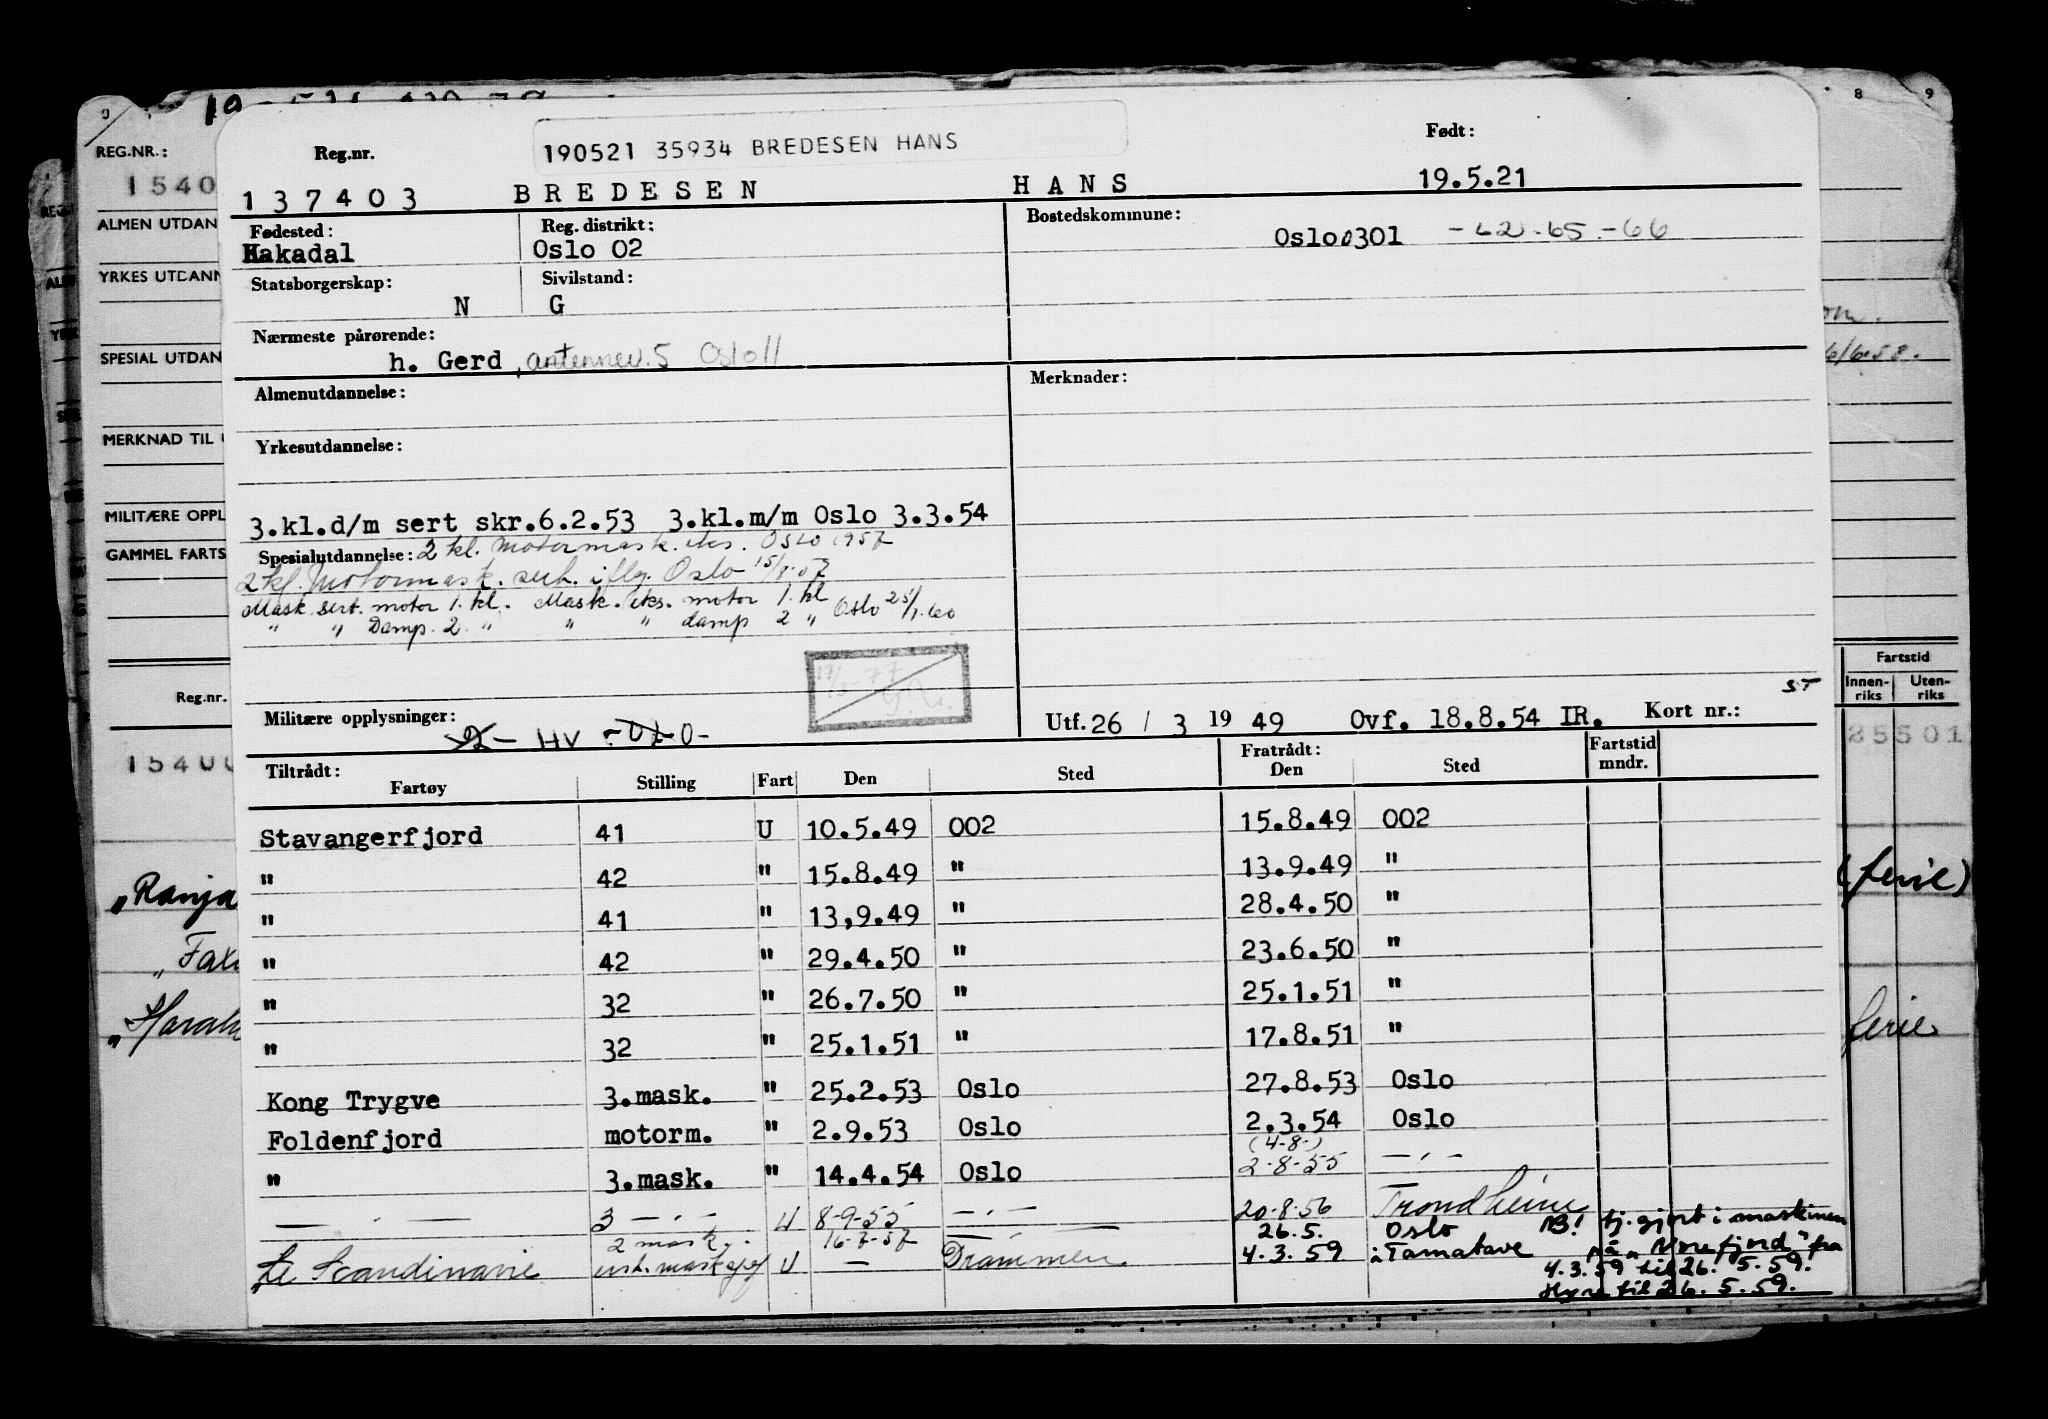 190521 35934 BREDESEN HANS
Reg.nr.
Født:
137403 BREDESEN HANS 19.5.21
Fødested:
Hakadal
Reg. distrikt:
Oslo 02
Bostedskommune:
Oslo 0301 -62-65.-66
Statsborgerskap:
N
Sivilstand:
G
Nærmeste pårørende:
h. Gerd, antennev. 5 Oslo 11
Almenutdannelse:
Merknader:
Yrkesutdannelse:
3.kl.d/m sert skr.6.2.53 3.kl.m/m Oslo 3.3.54
Spesialutdannelse: 2 kl. motormask. eks. Oslo 1957
2 kl. Motormask. sert. iflg. Oslo 15/8-57
Mask. sert. motor 1. kl. Mask. eks. motor 1. kl
" " Damp. 2. " " " damp 2 " Oslo 25/1.60
ST
Militære opplysninger:
HV -0-
Utf. 26 / 3 1949 Ovf. 18.8.54 IR. Kort nr.:
Tiltrådt:
Fartøy Stilling Fart Den Sted
Fratrådt:
Den Sted
Fartstid
mndr.
Stavangerfjord 41 U 10.5.49 002 15.8.49 002
" 42 " 15.8.49 " 13.9.49 "
" 41 " 13,9.49 " 28.4.50 "
" 42 " 29.4.50 " 23.6.50 "
" 32 " 26.7.50 " 25.1.51 "
" 32 " 25.1.51 " 17.8.51 "
Kong Trygve 3.mask. " 25.2.53 Oslo 27.8.53 Oslo
Foldenfjord motorm. " 2.9.53 Oslo 2.3.54 Oslo
(4-8-)
" 3.mask. " 14.4.54 Oslo 2-8-55 — " —
— " — 3 — " — U 8-9-55 — " — 20-8-56 Trondheim
2 mask. 16-7-57 26.5. Oslo NB! tj.gjort i maskinen
Le Scandinavie U — Drammen 4.3.59 i Tamatave på "Norefjord" fra
4.3.59 til 26.5.59.
Hyre til 26.5.59.
REG.NR.:
1540
ALMEN UTDAN
YRKES UTDANN
SPESIAL UTDAN
MERKNAD TIL
MILITÆRE OPPL
GAMMEL FARTS
Reg.nr.
15400
"Ranja
"Harald
8 9
6/6.58.
Fartstid
Innen-
riks
Uten-
riks
25501
(ferie)
ferie